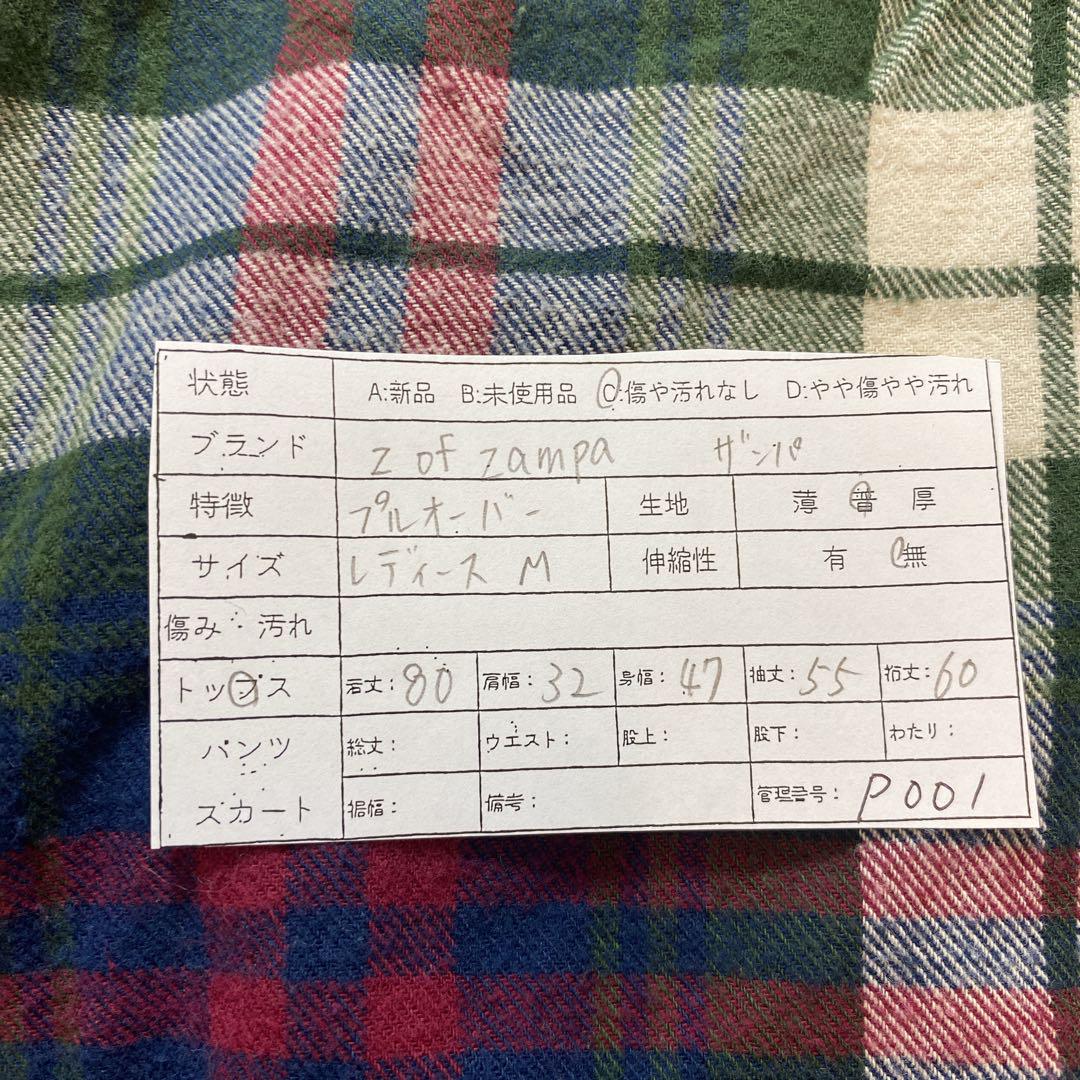 状態 A:新品 B:未使用品 C:傷や汚れなし D:やや傷やや汚れ
ブランド z of zampa ザンパ
特徴 プルオーバー 生地 薄 普 厚
サイズ レディース M 伸縮性 有 無
傷み・汚れ
トップス 着丈:80 肩幅:32 身幅:47 袖丈:55 裄丈:60
パンツ 総丈: ウエスト: 股上: 股下: わたり:
スカート 裾幅: 備考: 管理番号: P001